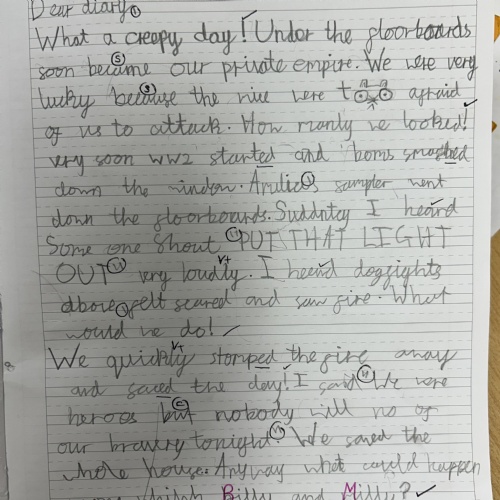 Dear diary,
What a creepy day! Under the gloorboards
soon became our private empire. We were very
lucky because the mice were too afraid
of us to attack. How manly we looked!
very soon WW2 started and boms smashed
down the window. sampler went
down the floorboards. Suddntey I heard
Some one shout "PUT THAT LIGHT
OUT" very loudly. I heard doggights
above, felt scared and saw fire. What
would we do!
We quickly stomped the fire away
and saved the day! I said "We were
heroes but nobody will no of
our bravery tonight" We saved the
whole house. Anyway what could happen
Billy and Milly?